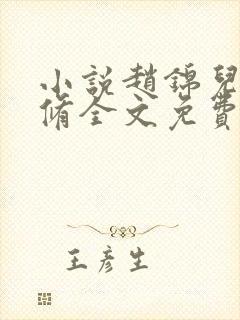 小說趙錦兒
脩全文免費
王彥生